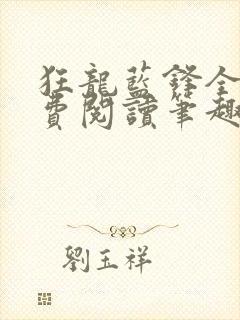 狂龍藍鋒全
費閱讀筆趣
劉玉祥